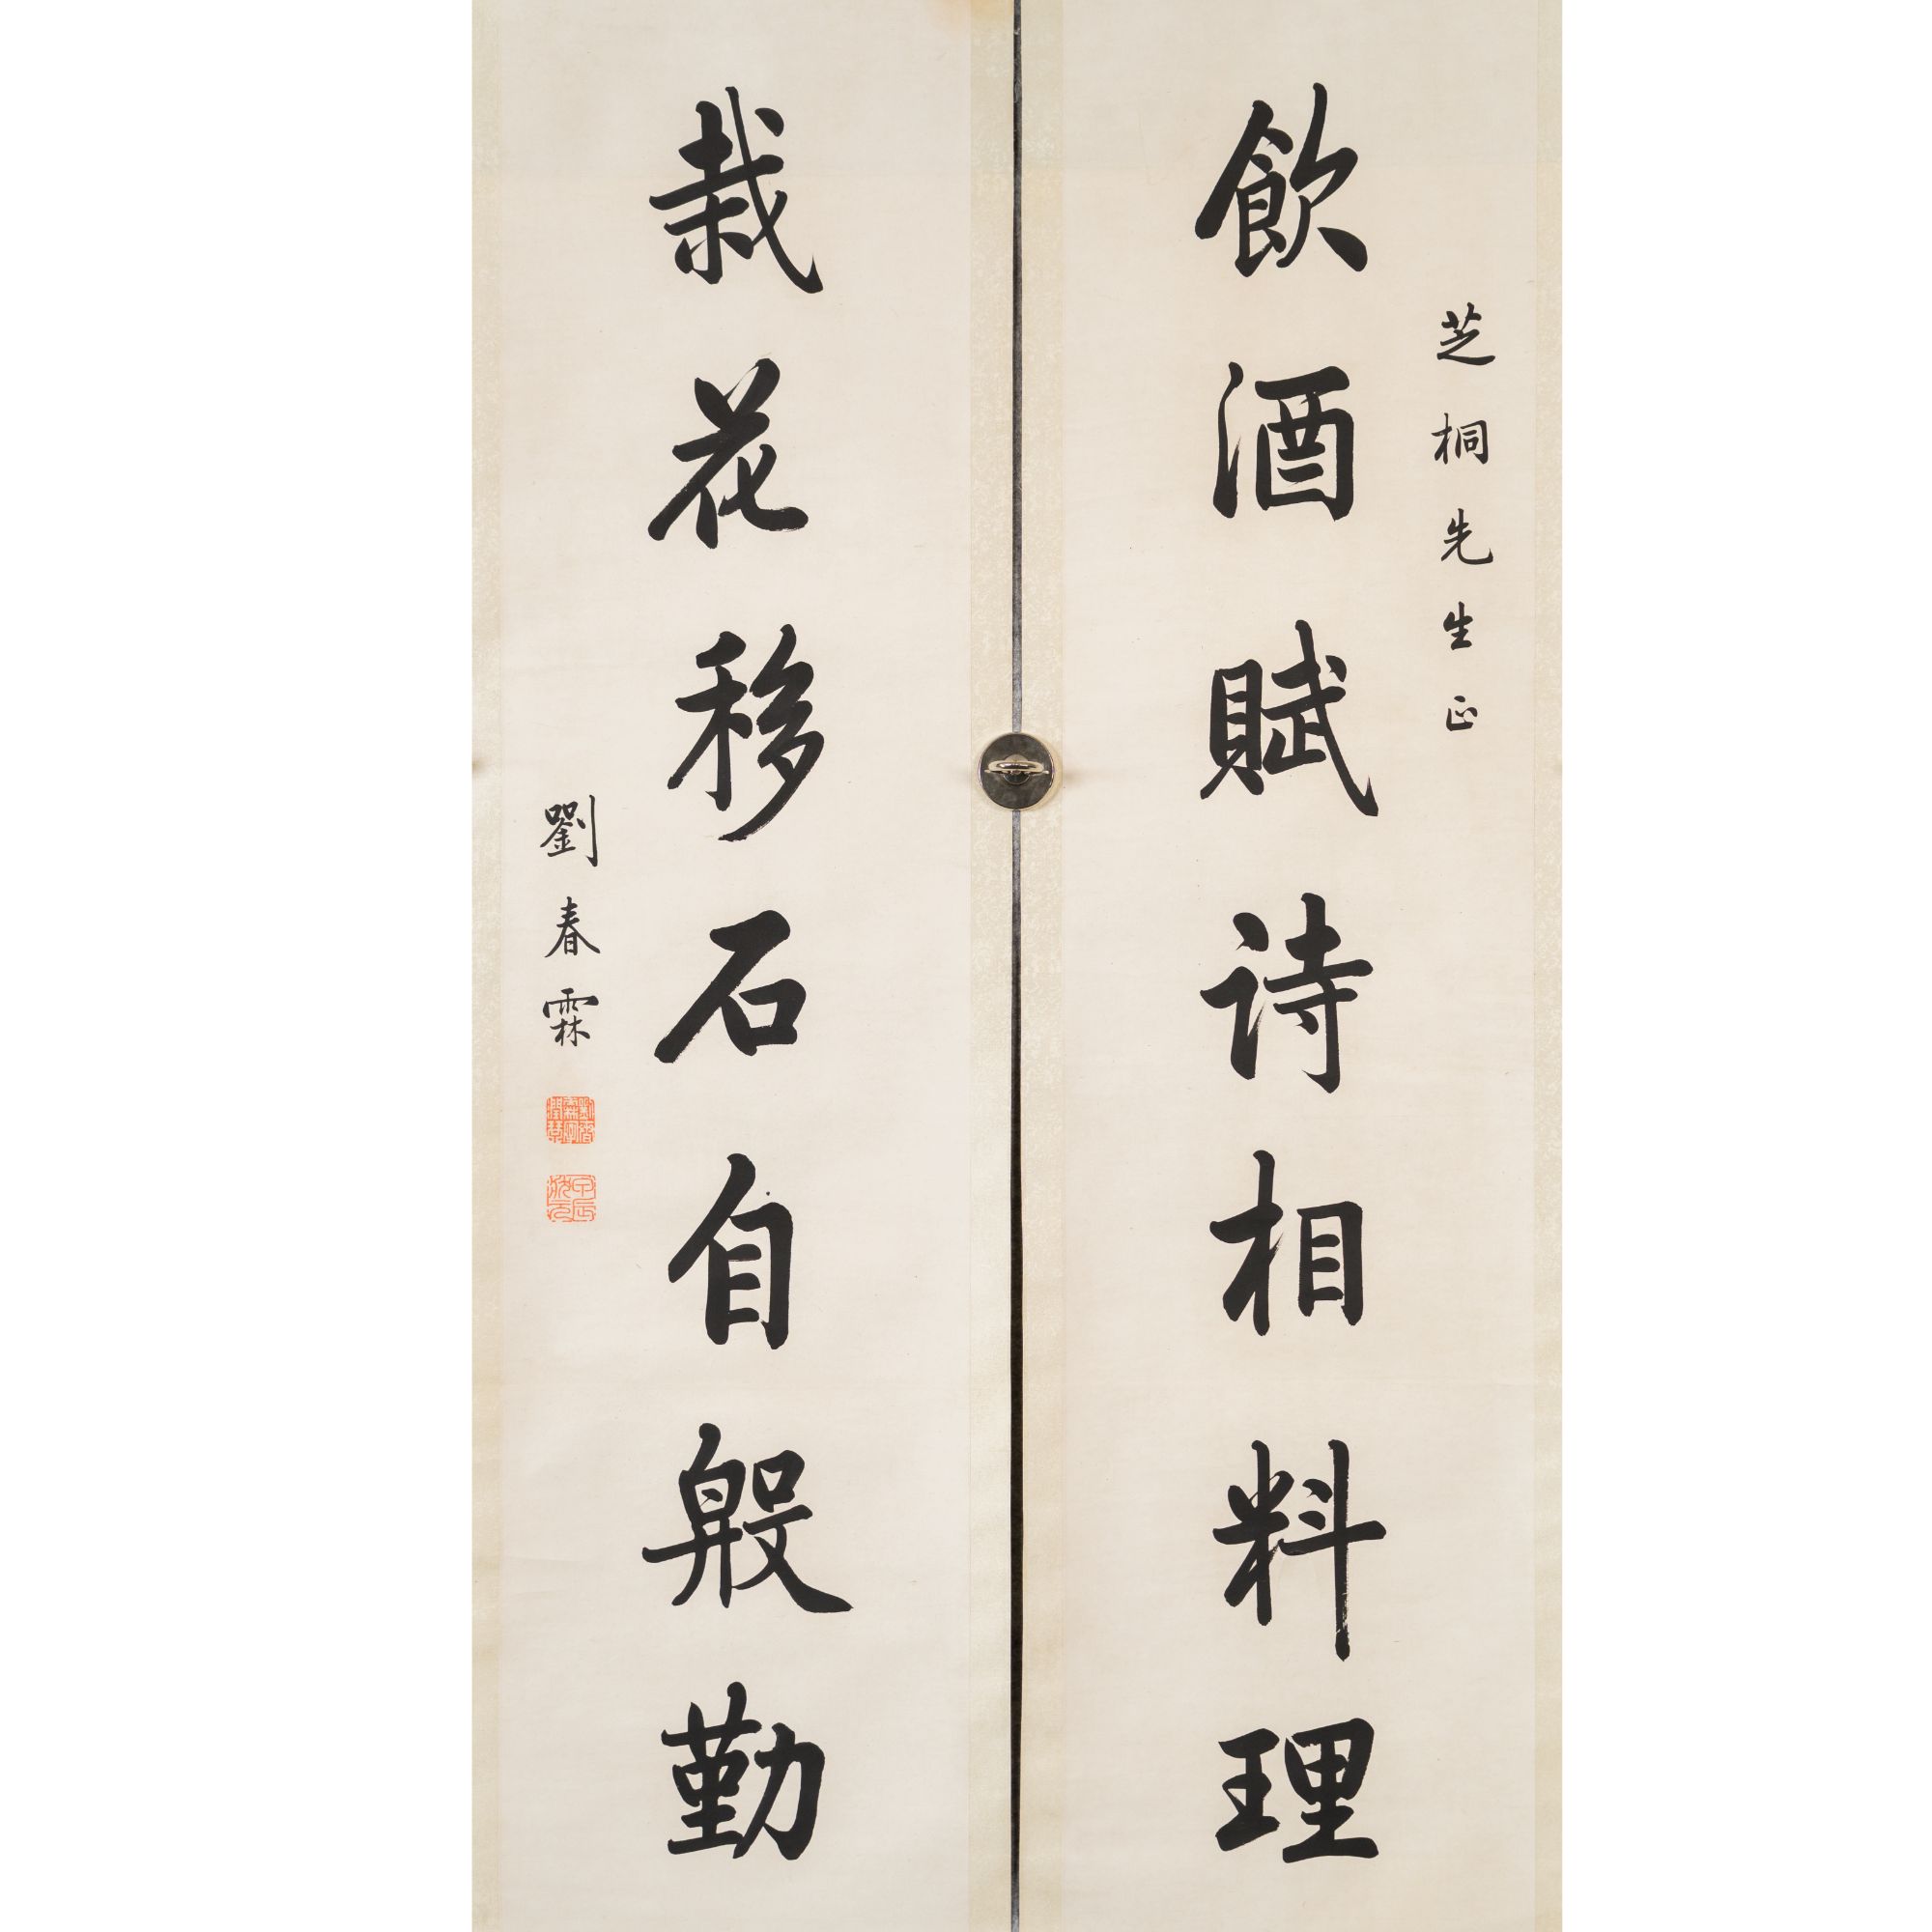 芝桐先生正
飲酒賦诗相料理
栽花移石自殷勤
劉春霖
甲辰狀元